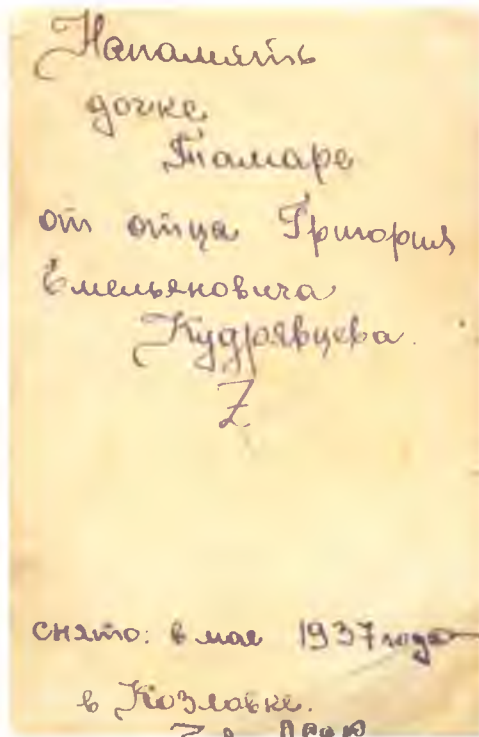 Напамять
дочке
Тамаре
от отца Григория
Емельяновича
Кудрявцева.
Z.
снято: в мае 1937 года
в Козловке.